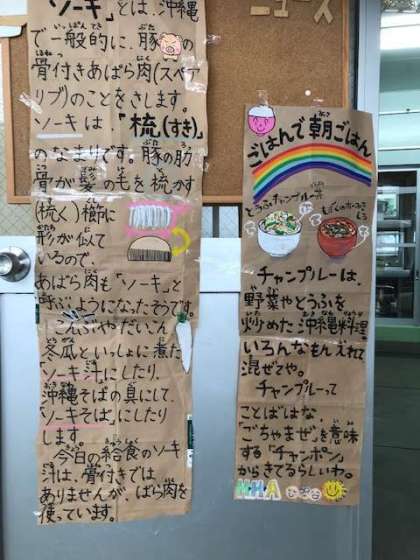 ニュース
「ソーキ」とは、沖縄
で一般的に、豚の
骨付きあばら肉(スペア
リブ)のことをさします。
ソーキは「梳(すき)」
のなまりです。豚の肋
骨が髪のもを梳かす
(梳く)櫛に
形が似て
いるので、
あばら肉も「ソーキ」と
呼ぶようになったそうです。
こんぶやだいこん
冬瓜といっしょに煮た
「ソーキ汁」にしたり、
沖縄そばの具にして、
「ソーキそば」にしたり
します。
今日の給食のソーキ
汁は、骨付きでは
ありませんが、ばら肉を
使っています。
ごはんで朝ごはん
とうふチャンプルー丼
チャンプルーは、
野菜やとうふを
炒めた沖縄料理
いろんなもんえれて
混ぜてや。
チャンプルーって
ことばはな、
"ごちゃまぜ"を意味
する「チャンポン」
からきてるらしいわ。